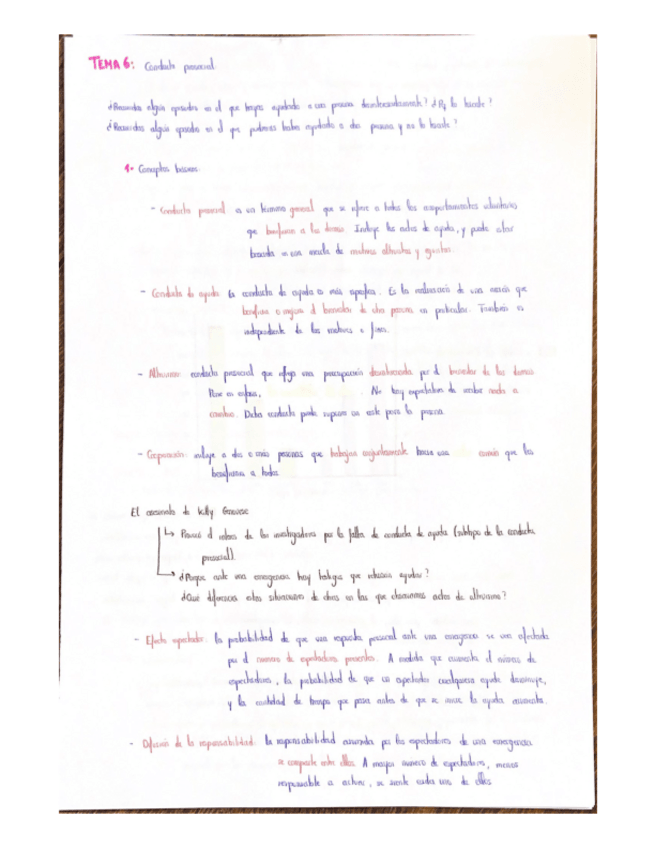 TEMA 6: Conducta prosocial
¿Recuerdas algún episodio en el que hayas ayudado a una persona desinteresadamente? ¿Pq lo hiciste?
¿Recuerdas algún episodio en el que pudieras haber ayudado a otra persona y no lo hiciste?
1- Conceptos básicos:
- Conducta prosocial es un término general que se refiere a todos los comportamientos voluntarios
que benefician a los demás. Incluye los actos de ayuda, y puede estar
basada en una mezcla de motivos altruistas y egoístas.
- Conducta de ayuda: la conducta de ayuda es más específica. Es la realización de una acción que
beneficia o mejora el bienestar de otra persona en particular. También es
independiente de los motivos o fines.
- Altruismo: conducta prosocial que refleja una preocupación desinteresada por el bienestar de los demás.
No hay expectativa de recibir nada a
cambio. Dicha conducta puede suponer un coste para la persona.
- Cooperación: incluye a dos o más personas que trabajan conjuntamente hacia una común que les
beneficiará a todos
El asesinato de Kitty Genovese
↳ Provocó el interés de los investigadores por la falta de conducta de ayuda (subtipo de la conducta
prosocial).
→ ¿Porque ante una emergencia hay testigos que rehúsan ayudar?
¿Qué diferencia estas situaciones de otras en las que observamos actos de altruismo?
- Efecto espectador: la probabilidad de que una respuesta prosocial ante una emergencia se vea afectada
por el número de espectadores presentes. A medida que aumenta el número de
espectadores, la probabilidad de que un espectador cualquiera ayude disminuye,
y la cantidad de tiempo que pasa antes de que se inicie la ayuda aumenta.
- Difusión de la responsabilidad: la responsabilidad asumida por los espectadores de una emergencia
se comparte entre ellos. A mayor número de espectadores, menos
responsable a activar, se siente cada uno de ellos